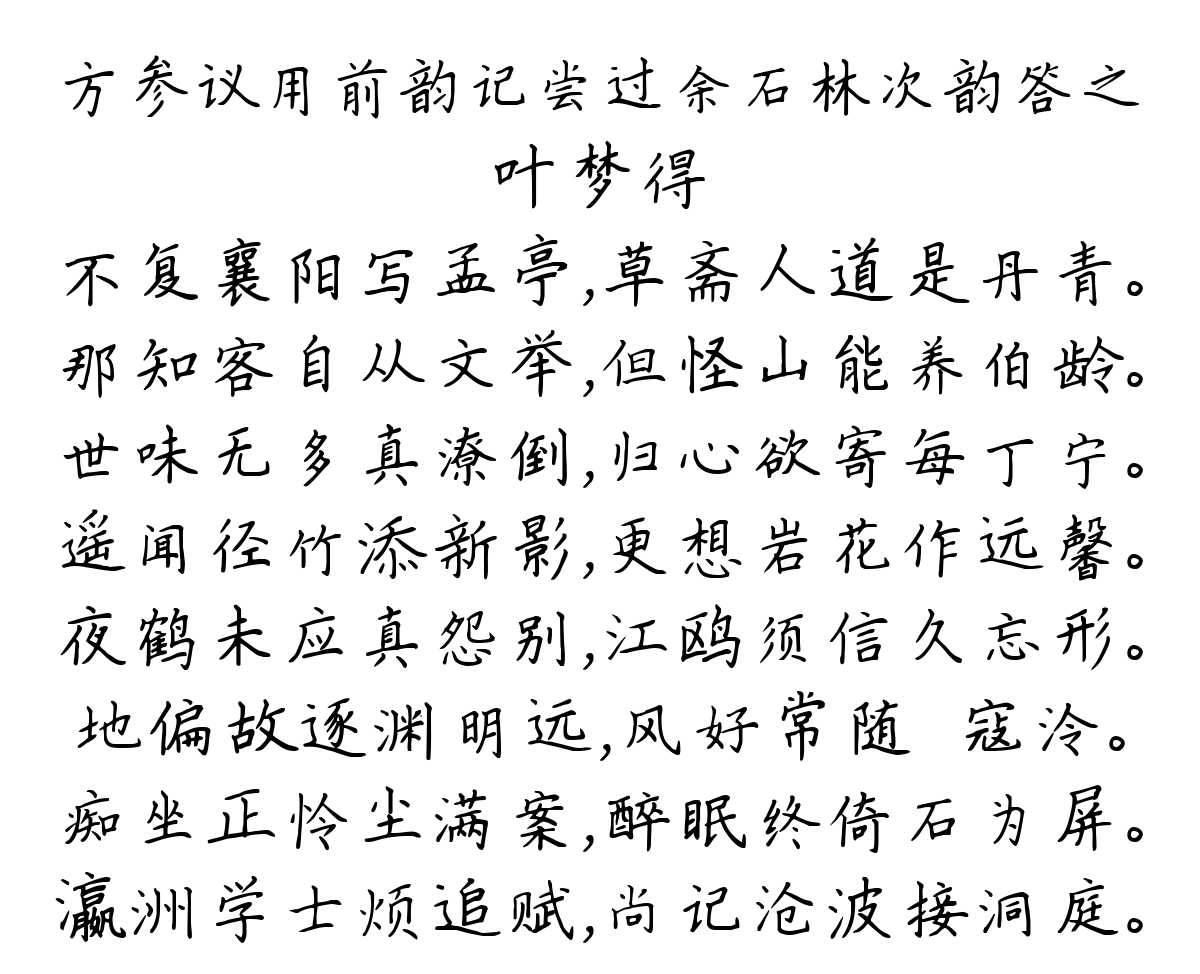 方参议用前韵记尝过余石林次韵答之
叶梦得
不复襄阳写孟亭,草斋人道是丹青。
那知客自从文举,但怪山能养伯龄。
世味无多真潦倒,归心欲寄每丁宁。
遥闻径竹添新影,更想岩花作远馨。
夜鹤未应真怨别,江鸥须信久忘形。
地偏故逐渊明远,风好常随 寇泠。
痴坐正怜尘满案,醉眠终倚石为屏。
瀛洲学士烦追赋,尚记沧波接洞庭。